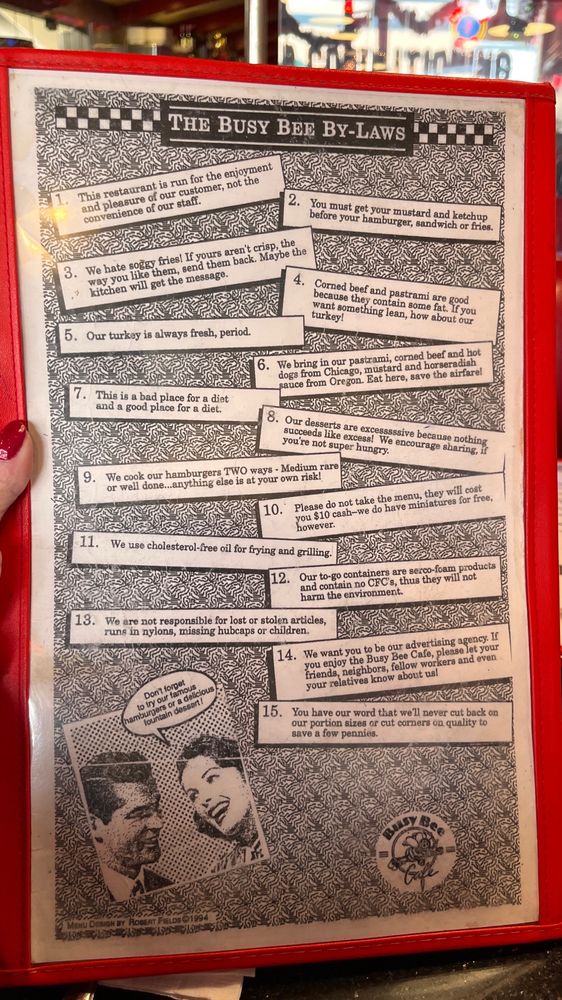 THE BUSY BEE BY-LAWS
1. This restaurant is run for the enjoyment
and pleasure of our customer, not the
convenience of our staff.
2. You must get your mustard and ketchup
before your hamburger, sandwich or fries.
3. We hate soggy fries! If yours aren't crisp, the
way you like them, send them back. Maybe the
kitchen will get the message.
4. Corned beef and pastrami are good
because they contain some fat. If you
want something lean, how about our
turkey!
5. Our turkey is always fresh, period.
6. We bring in our pastrami, corned beef and hot
dogs from Chicago, mustard and horseradish
sauce from Oregon. Eat here, save the airfare!
7. This is a bad place for a diet
and a good place for a diet.
8. Our desserts are excesssssive because nothing
succeeds like excess! We encourage sharing, if
you're not super hungry.
9. We cook our hamburgers TWO ways - Medium rare
or well done...anything else is at your own risk!
10. Please do not take the menu, they will cost
you $10 cash–we do have miniatures for free,
however.
11. We use cholesterol-free oil for frying and grilling.
12. Our to-go containers are serco-foam products
and contain no CFC's, thus they will not
harm the environment.
13. We are not responsible for lost or stolen articles,
runs in nylons, missing hubcaps or children.
14. We want you to be our advertising agency. If
you enjoy the Busy Bee Cafe, please let your
friends, neighbors, fellow workers and even
your relatives know about us!
15. You have our word that we'll never cut back on
our portion sizes or cut corners on quality to
save a few pennies.
Don't forget
to try our famous
hamburgers or a delicious
fountain dessert!
Busy Bee
Cafe
MENU DESIGN BY ROBERT FIELDS ©1994